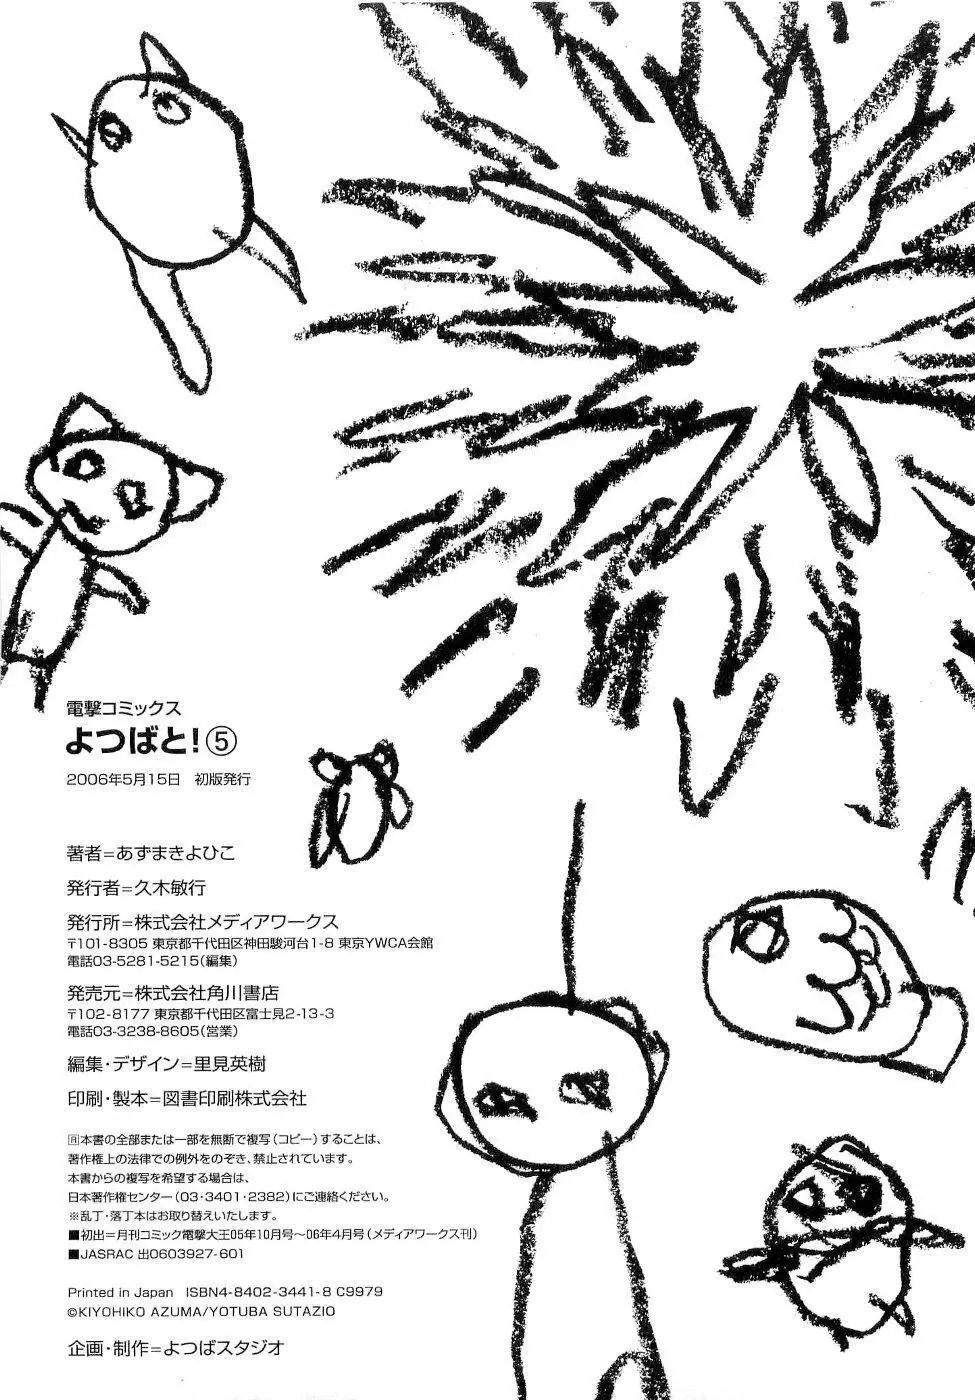 電撃コミックス
よつばと!⑤
2006年5月15日 初版発行
著者=あずまきよひこ
発行者=久木敏行
発行所=株式会社メディアワークス
〒101-8305 東京都千代田区神田駿河台1-8 東京YWCA会館
電話03-5281-5215(編集)
発売元=株式会社角川書店
〒102-8177 東京都千代田区富士見2-13-3
電話03-3238-8605(営業)
編集・デザイン=里見英樹
印刷・製本=図書印刷株式会社
Ⓡ本書の全部または一部を無断で複写(コピー)することは、
著作権上の法律での例外をのぞき、禁止されています。
本書からの複写を希望する場合は、
日本著作権センター(03・3401・2382)にご連絡ください。
※乱丁・落丁本はお取り替えいたします。
■初出=月刊コミック電撃大王05年10月号〜06年4月号(メディアワークス刊)
■JASRAC 出0603927-601
Printed in Japan ISBN4-8402-3441-8 C9979
©KIYOHIKO AZUMA/YOTUBA SUTAZIO
企画・制作=よつばスタジオ